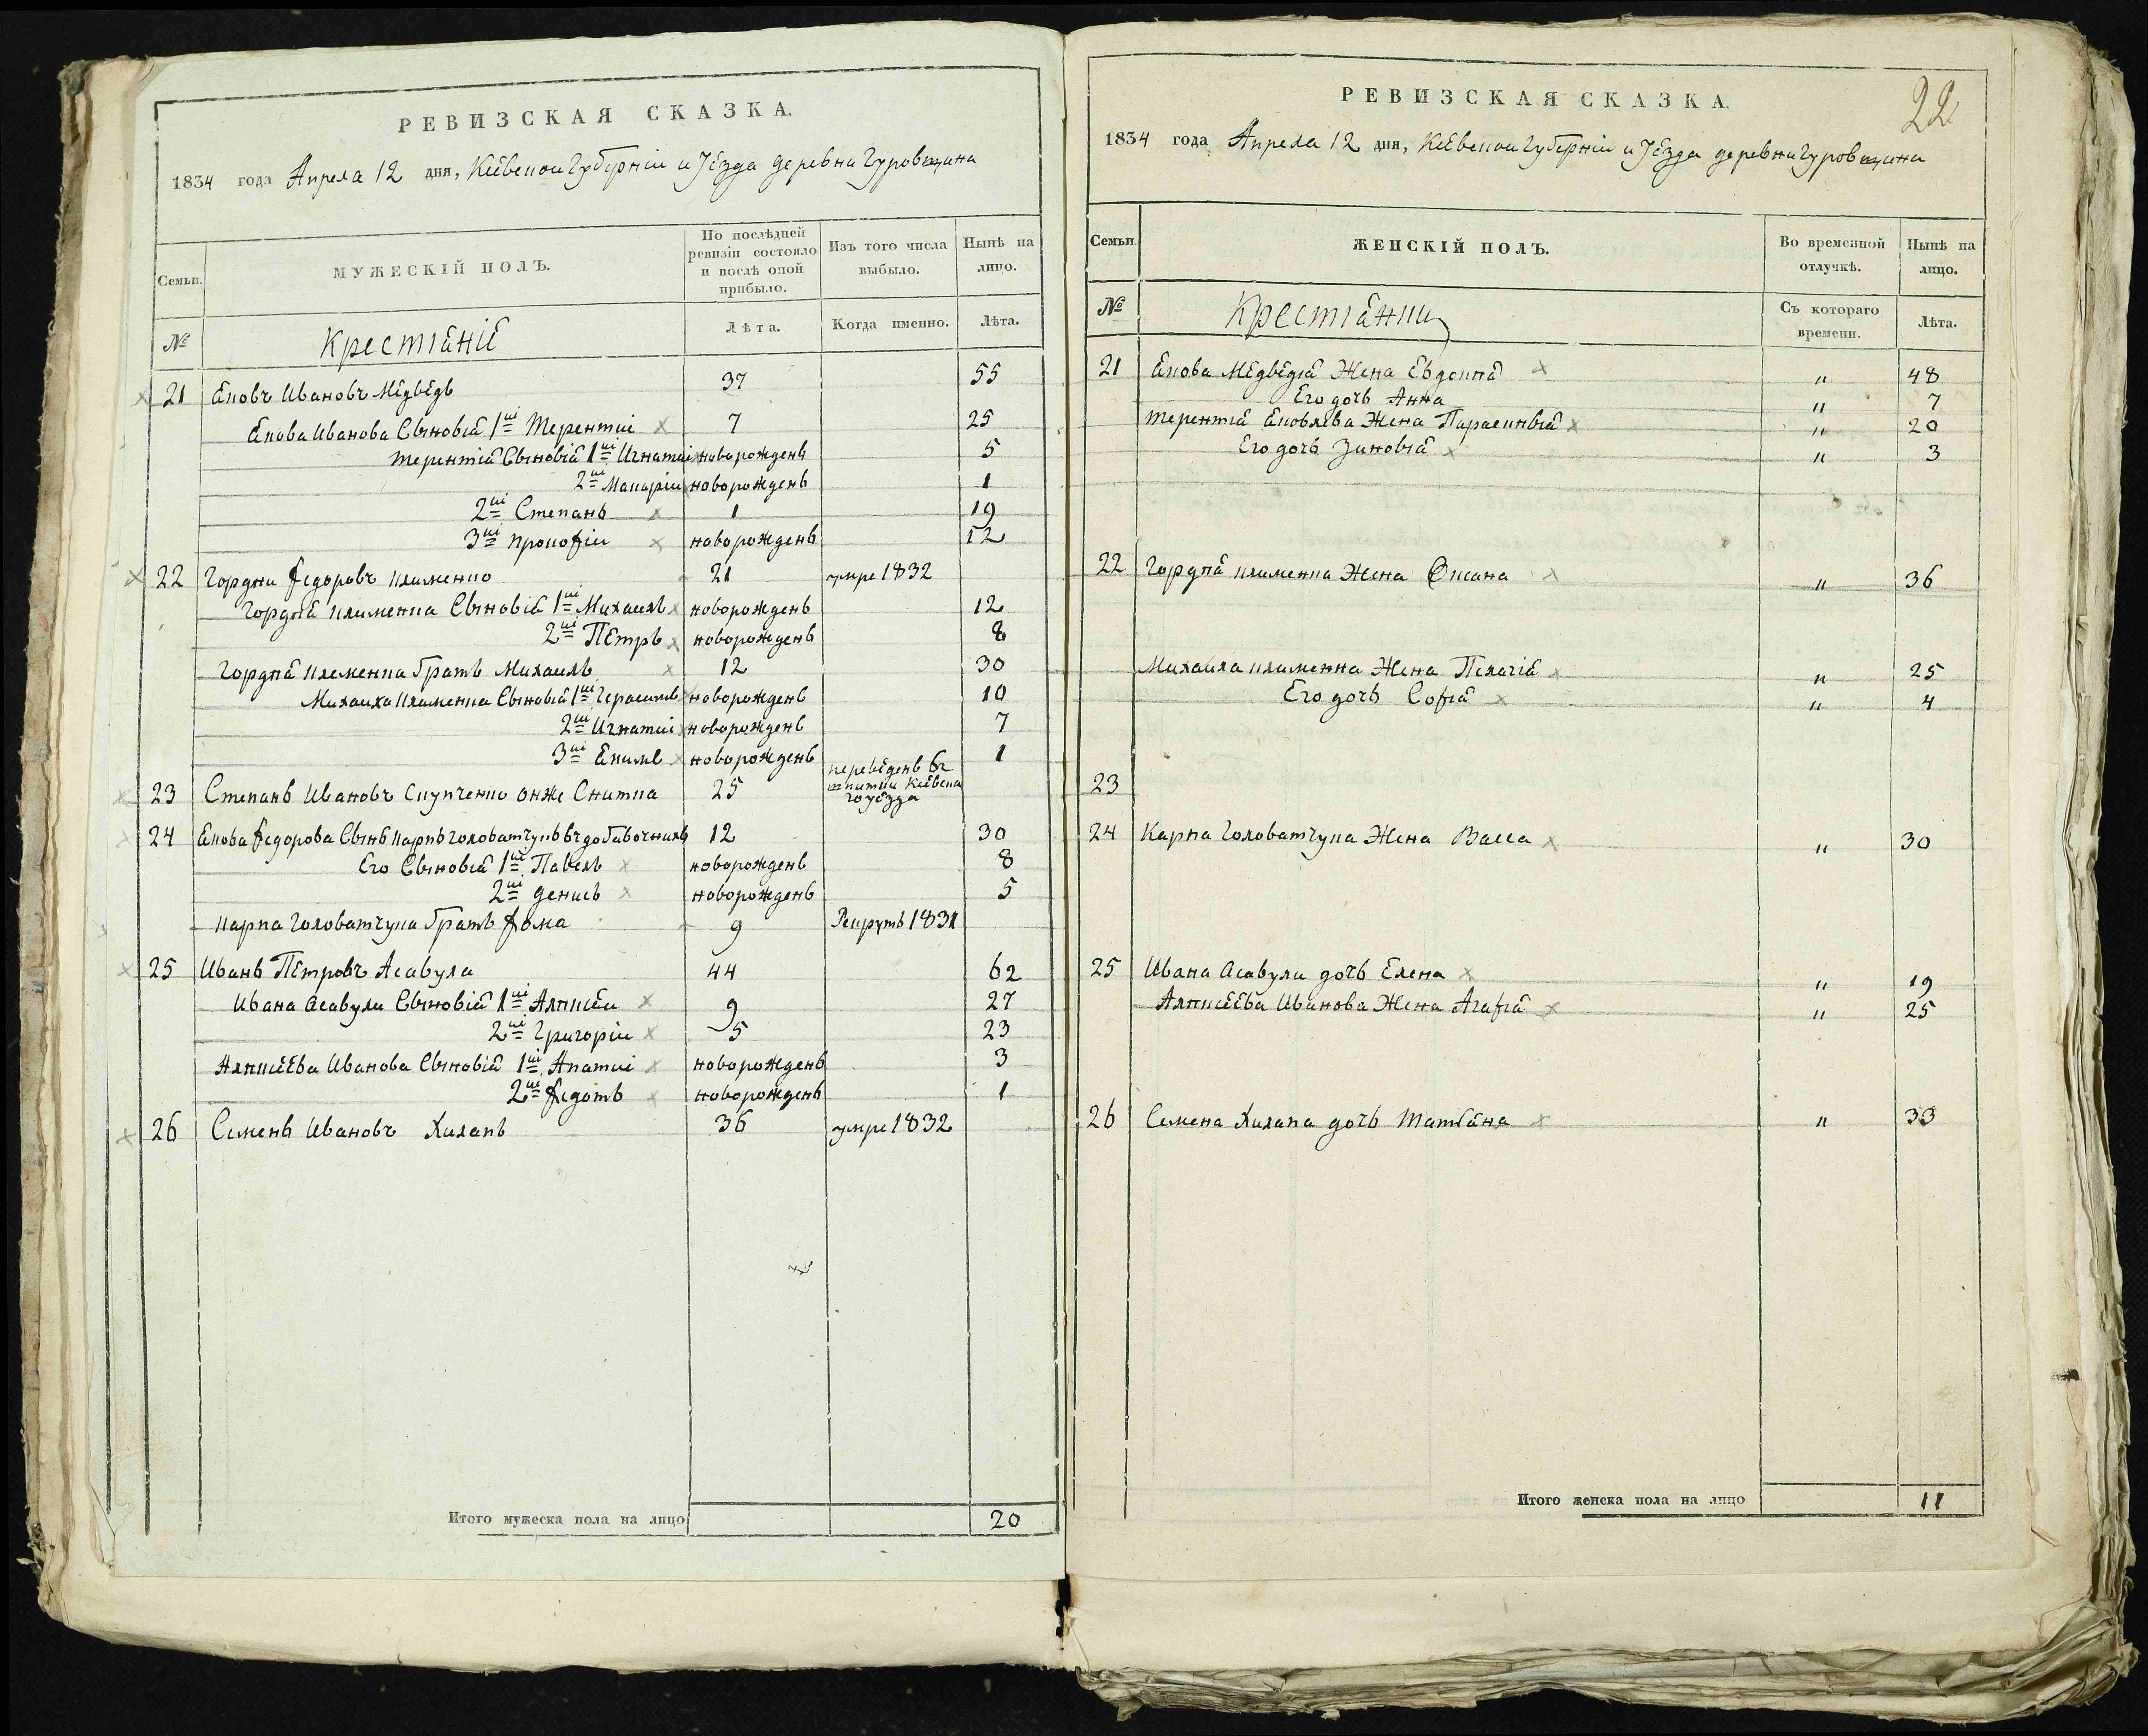 РЕВИЗСКАЯ СКАЗКА.
1834 года Апреля 12 дня, Кіевской Губерніи и Уѣзда деревни Гуровщина
Семьи.
МУЖЕСКІЙ ПОЛЪ.
По послѣдней ревизіи состояло и послѣ оной прибыло.
Изъ того числа выбыло.
Нынѣ на лицо.
№
Крестіане
Лѣта.
Когда именно.
Лѣта.
21 Яковъ Ивановъ Медведь 37 55
Якова Иванова Сыновія 1й Терентий 7 25
Терентія Сыновія 1й Игнатий новорожденъ 5
2й Макарій новорожденъ 1
2й Степанъ 1 19
3й Прокофій новорожденъ 12
22 Гордий Федоровъ Клименко 21 умре 1832
Гордія Клименка Сыновія 1й Михаилъ новорожденъ 12
2й Петръ новорожденъ 8
Гордія Клеменка братъ Михаилъ 12 30
Михаила Клименка Сыновія 1й Герасимъ новорожденъ 10
2й Игнатий новорожденъ 7
3й Екимъ новорожденъ 1
23 Степанъ Ивановъ онже Снитка 25 переведенъ въ Шнитки Кіевска го уѣзда
24 Якова Федорова Сынъ Карпъ Головатчукъ въ добавочныхъ 12 30
Его Сыновія 1й Павелъ новорожденъ 8
2й Денисъ новорожденъ 5
Карпа Головатчука братъ Фома 9 Рекрутъ 1831
25 Иванъ Петровъ Асавула 44 62
Ивана Асавули Сыновія 1й Алексей 9 27
2й Григорій 5 23
Алексеева Иванова Сыновія 1й Ипатий новорожденъ 3
2й Федотъ новорожденъ 1
26 Семенъ Ивановъ Хилакъ 36 умре 1832
Итого мужеска пола на лицо 20
22
РЕВИЗСКАЯ СКАЗКА.
1834 года Апреля 12 дня, Кіевской Губерніи и Уѣзда деревни Гуровщини
Семьи.
ЖЕНСКІЙ ПОЛЪ.
Во временной отлучкѣ.
Нынѣ на лицо.
№
Крестіанки
Съ котораго времени.
Лѣта.
21 Якова Медведя Жена Евдокия " 48
Его дочь Анна " 7
Терентія Яковлева Жена Параскивія " 20
Его дочь Зиновія " 3
22 Гордия Клименка Жена Оксана " 36
Михаила Клименка Жена Пелагія " 25
Его дочь Софія " 4
23
24 Карпа Головатчука Жена Васса " 30
25 Ивана Асавули дочь Елена " 19
Алексеева Иванова Жена Агафія " 25
26 Семена Хилака дочь Татіана " 33
Итого женска пола на лицо 11